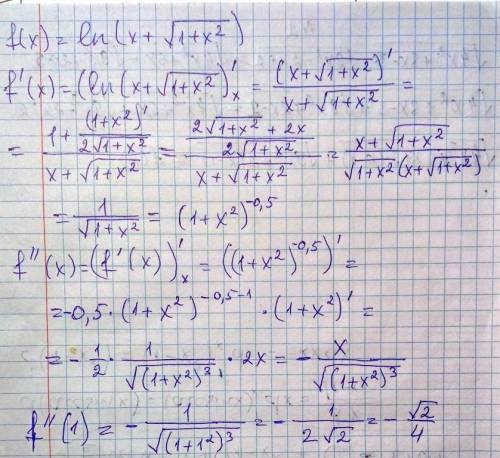 f(x) = ln(x + √(1+x²))
f'(x) = (ln(x+√(1+x²))'ₓ = (x+√(1+x²))' / (x+√(1+x²)) =
= (1 + (1+x²)' / (2√(1+x²))) / (x+√(1+x²)) = ((2√(1+x²) + 2x) / (2√(1+x²))) / (x+√(1+x²)) = (x+√(1+x²)) / (√(1+x²)(x+√(1+x²)))
= 1/√(1+x²) = (1+x²)^(-0,5)
f''(x) = (f'(x))'ₓ = ((1+x²)^(-0,5))' =
= -0,5 · (1+x²)^(-0,5-1) · (1+x²)' =
= - 1/2 · 1/√((1+x²)³) · 2x = - x/√((1+x²)³)
f''(1) = - 1/√((1+1²)³) = - 1/(2√2) = - √2/4